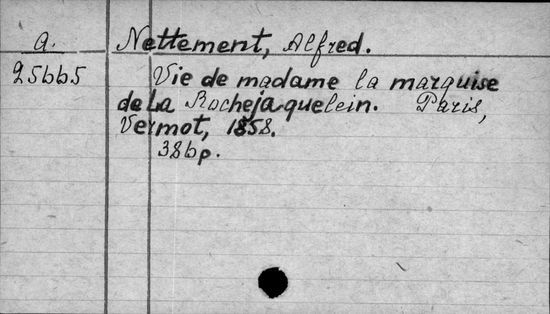 a. Nettement, Alfred.
25665 Vie de madame la marquise
de La Rochejaquelein. Paris,
Vermot, 1858.
386p.